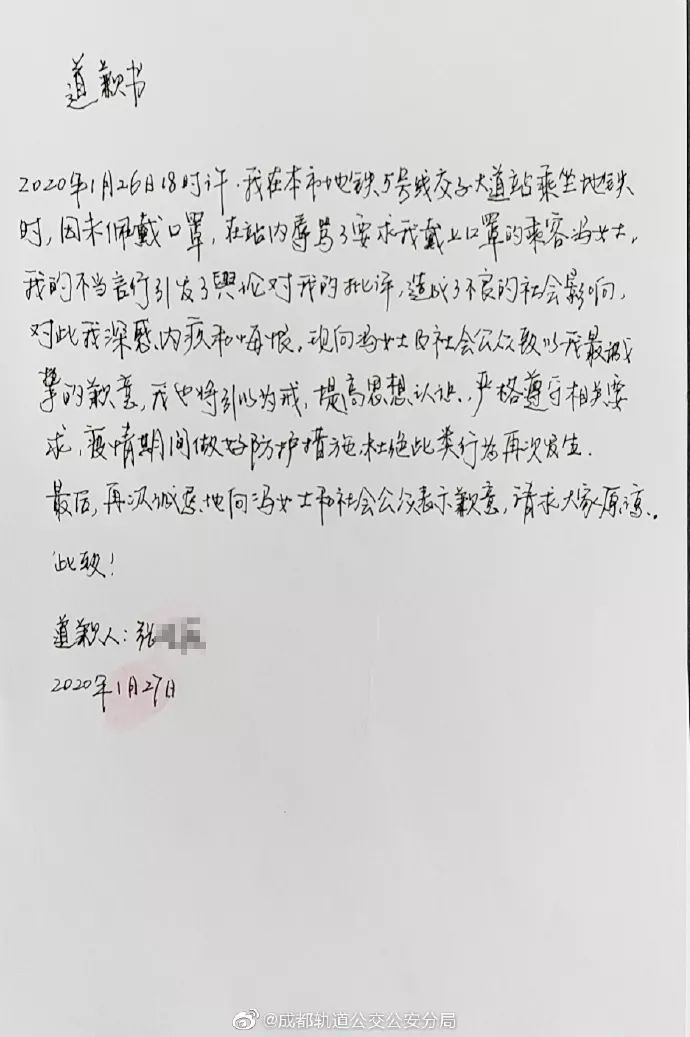 道歉书
2020年1月26日18时许,我在本市地铁5号线交子大道站乘坐地铁
时,因未佩戴口罩,在站内辱骂了要求我戴上口罩的乘客冯女士,
我的不当言行引发了舆论对我的批评,造成了不良的社会影响,
对此我深感内疚和悔恨,现向冯女士及社会公众致以我最诚
挚的歉意,我也将引以为戒,提高思想认识、严格遵守相关要
求,疫情期间做好防护措施,杜绝此类行为再次发生.
最后,再次诚恳地向冯女士和社会公众表示歉意,请求大家原谅.
此致!
道歉人:张
2020年1月27日
@成都轨道公交公安分局